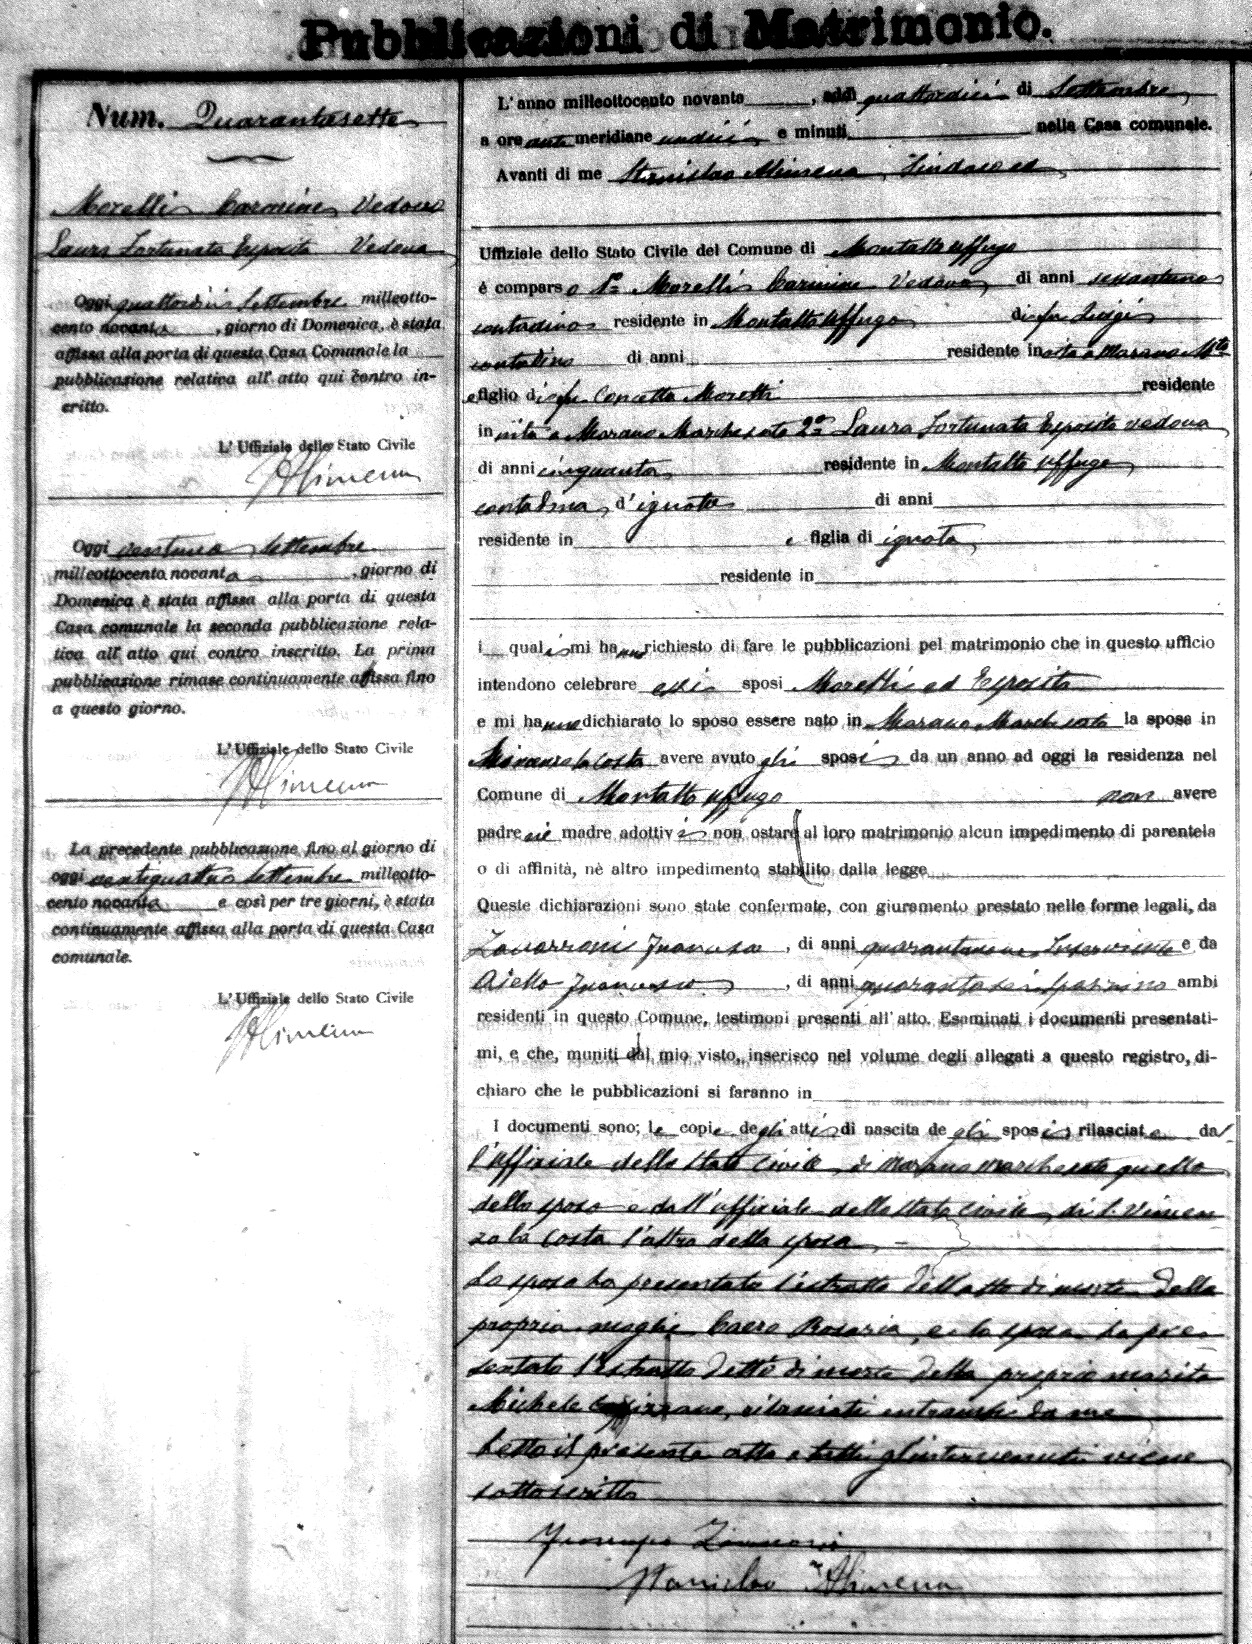 Pubblicazioni di Matrimonio.
Num. Quarantasette
Morelli Carmine Vedovo
Laura Fortunata Esposito Vedova
Oggi quattordici Settembre milleotto-
cento novanta, giorno di Domenica, è stata
affissa alla porta di questa Casa Comunale la
pubblicazione relativa all' atto qui contro in-
critto.
L' Uffiziale dello Stato Civile
SAlimena
Oggi ventuno Settembre
milleottocento novanta, giorno di
Domenica è stata affissa alla porta di questa
Casa comunale la seconda pubblicazione rela-
tiva all' atto qui contro inscritto. La prima
pubblicazione rimase continuamente affissa fino
a questo giorno.
L' Uffiziale dello Stato Civile
SAlimena
La precedente pubblicazione fino al giorno di
oggi ventiquattro Settembre milleotto-
cento novanta e così per tre giorni, è stata
continuamente affissa alla porta di questa Casa
comunale.
L' Uffiziale dello Stato Civile
SAlimena
L' anno milleottocento novanta, addì quattordici di Settembre
a ore ante meridiane undici e minuti nella Casa comunale.
Avanti di me Stanislao Alimena, Sindaco ed
Uffiziale dello Stato Civile del Comune di Montalto Uffugo
è comparso 1º Morelli Carmine Vedovo, di anni sessantuno
contadino residente in Montalto Uffugo di fu Luigi
contadino di anni residente in vita a Marano Mto
e figlio di fu Concetta Moretti residente
in vita a Marano Marchesato 2ª Laura Fortunata Esposito vedova
di anni cinquanta residente in Montalto Uffugo
contadina, d' ignoto di anni
residente in e figlia di ignota
residente in
i quali mi hanno richiesto di fare le pubblicazioni pel matrimonio che in questo ufficio
intendono celebrare essi sposi Morelli ed Esposito
e mi hanno dichiarato lo sposo essere nato in Marano Marchesato la sposa in
Vincenzo la Costa avere avuto gli sposi da un anno ad oggi la residenza nel
Comune di Montalto Uffugo non avere
padre nè madre adottivi non ostare al loro matrimonio alcun impedimento di parentela
o di affinità, nè altro impedimento stabilito dalla legge
Queste dichiarazioni sono state confermate, con giuramento prestato nelle forme legali, da
Zavarroni, di anni Inserviente e da
Aiello Francesco, di anni quarantasei ambi
residenti in questo Comune, testimoni presenti all' atto. Esaminati i documenti presentati-
mi, e che, muniti dal mio visto, inserisco nel volume degli allegati a questo registro, di-
chiaro che le pubblicazioni si faranno in
I documenti sono; le copie degli atti di nascita de gli sposi rilasciate dal
l' uffiziale dello Stato Civile di Marano Marchesato quella
dello sposo e dall' uffiziale dello stato civile di S. Vincen
zo la Costa l' altra della sposa
Lo sposo ha presentato l' estratto dell atto di morte della
propria moglie Caero Rosaria, e la sposa ha pre
sentato l' estratto detto di morte del proprio marito
Michele, rilasciati entrambi da me
Letto il presente atto a tutti gl' intervenuti viene
sottoscritto
Zavarroni
Stanislao Alimena